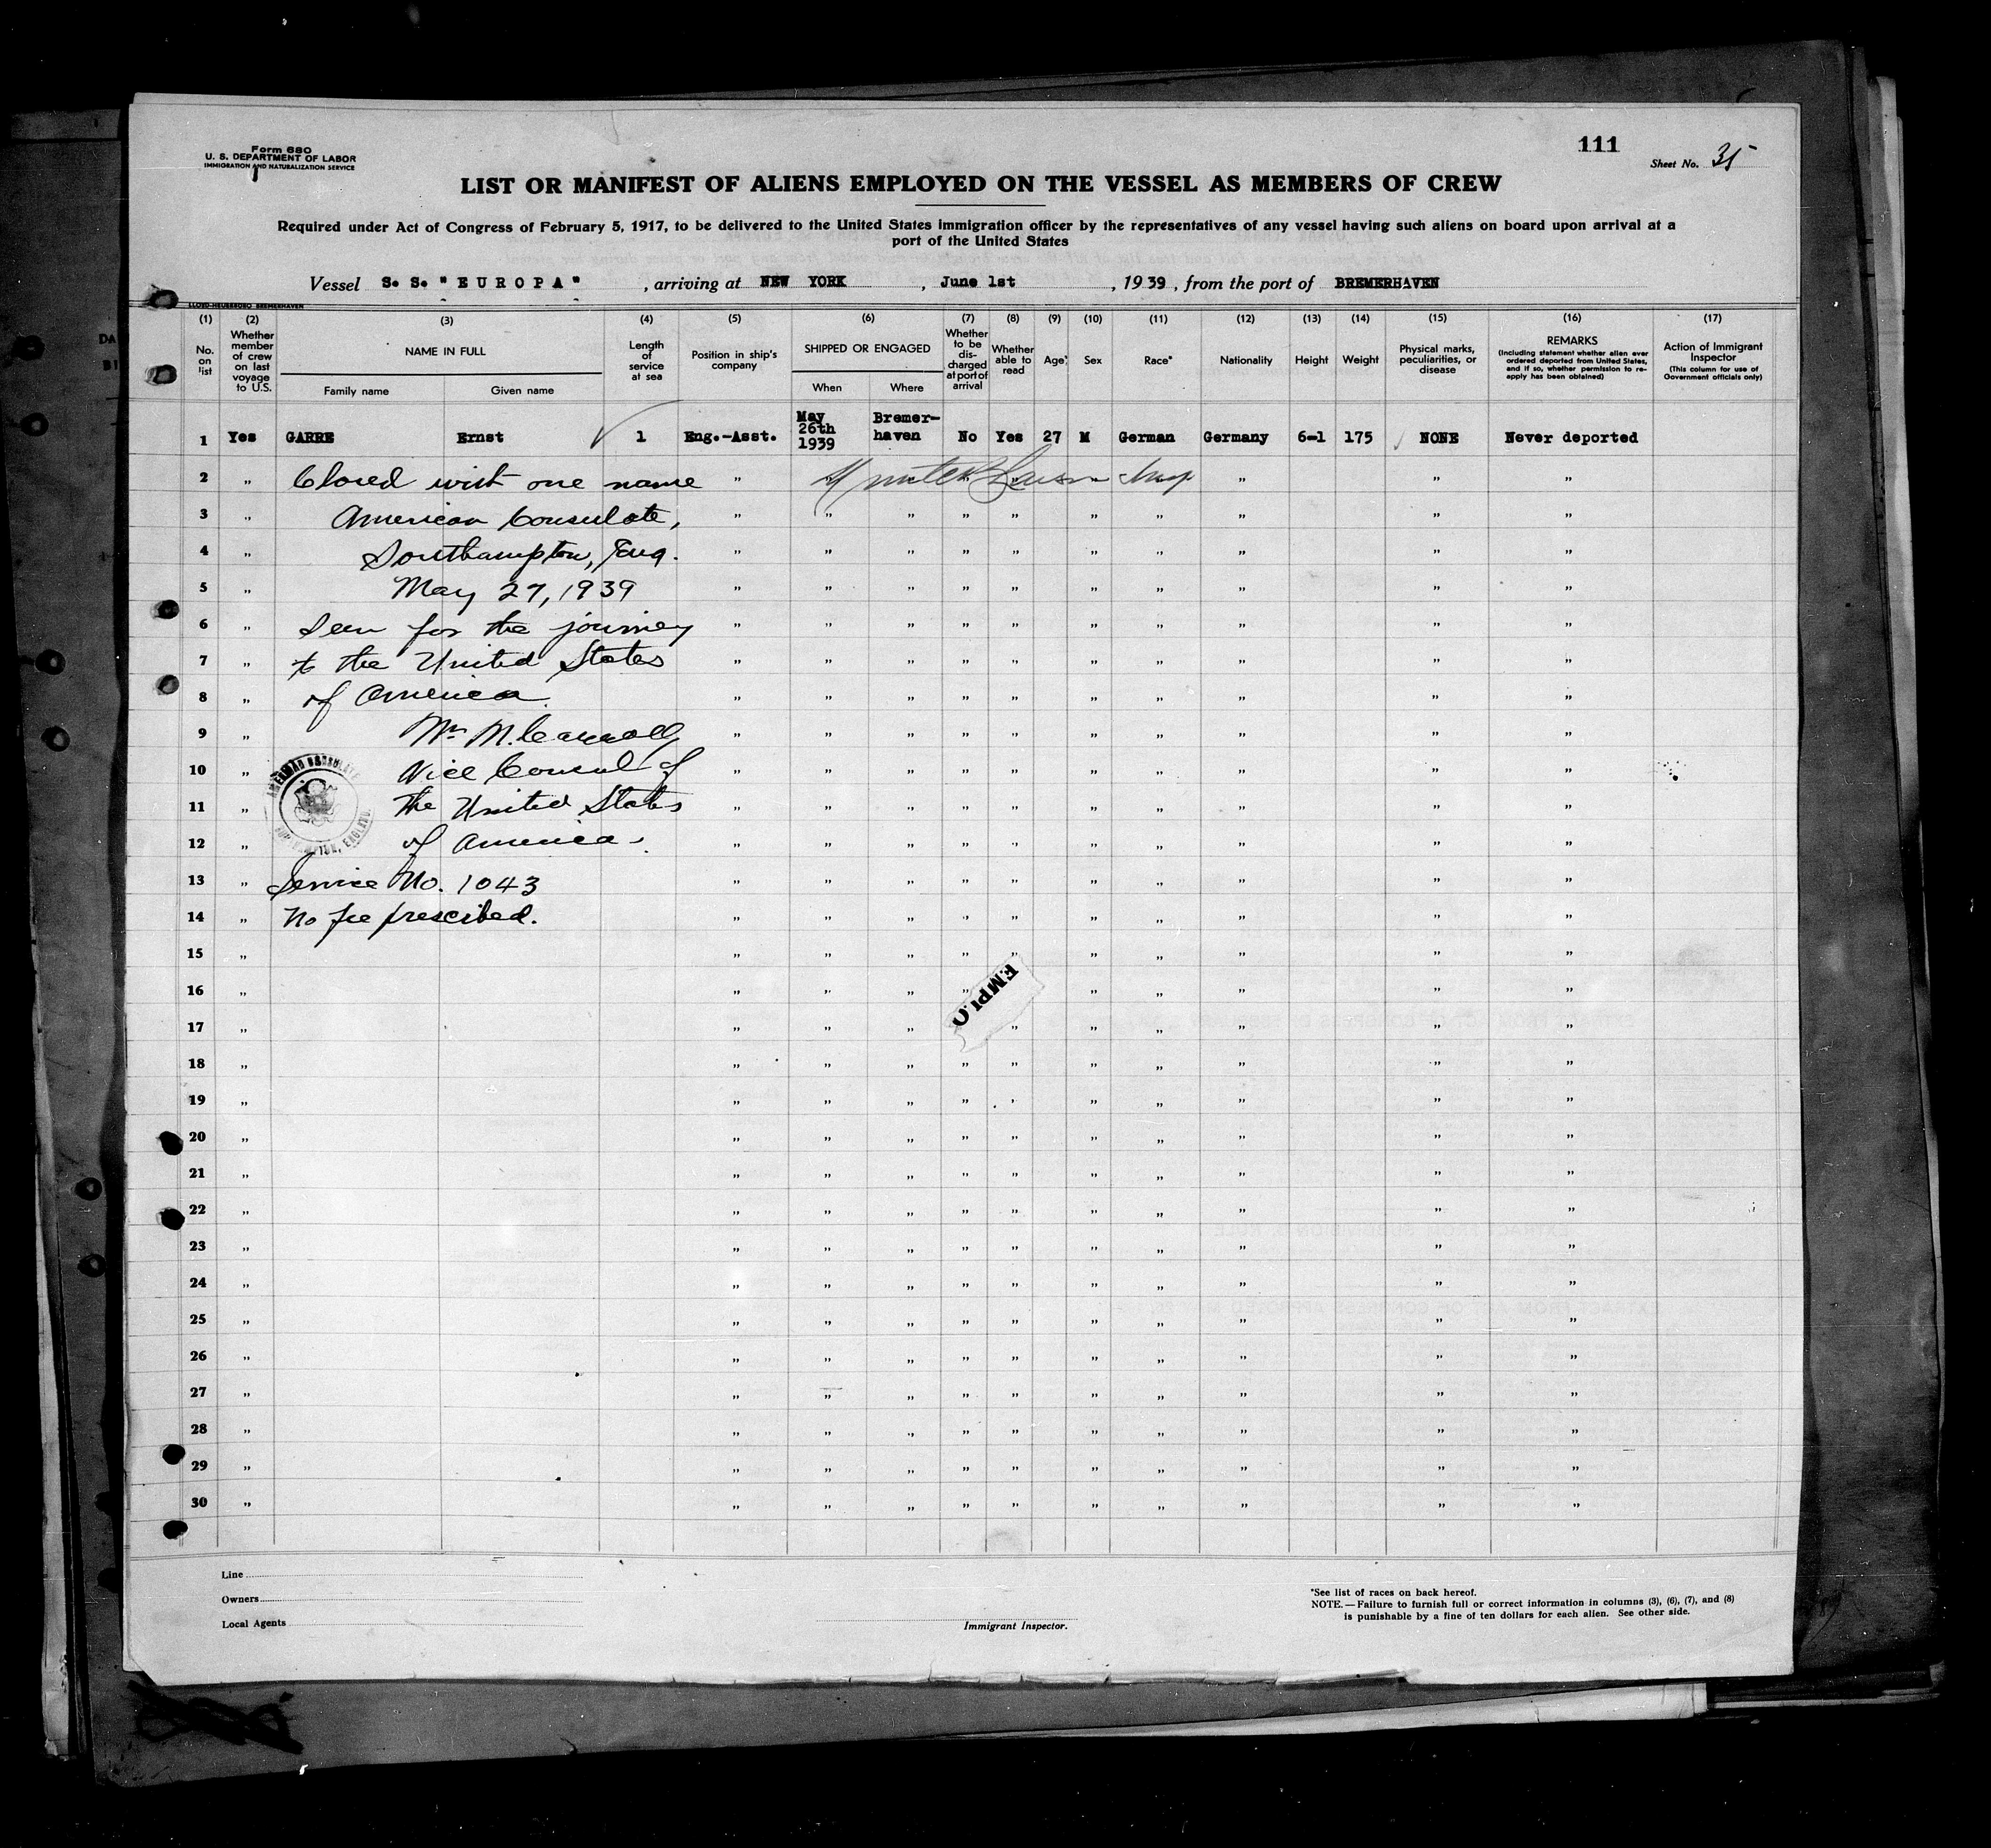 Form 680
U. S. DEPARTMENT OF LABOR
IMMIGRATION AND NATURALIZATION SERVICE
111
Sheet No. 35
LIST OR MANIFEST OF ALIENS EMPLOYED ON THE VESSEL AS MEMBERS OF CREW
Required under Act of Congress of February 5, 1917, to be delivered to the United States immigration officer by the representatives of any vessel having such aliens on board upon arrival at a
port of the United States
Vessel S. S. "EUROPA", arriving at NEW YORK, June 1st, 1939, from the port of BREMERHAVEN
(1) (2) (3) (4) (5) (6) (7) (8) (9) (10) (11) (12) (13) (14) (15) (16) (17)
No. on list
Whether member of crew on last voyage to U.S.
NAME IN FULL
Family name Given name
Length of service at sea
Position in ship's company
SHIPPED OR ENGAGED
When Where
Whether to be discharged at port of arrival
Whether able to read
Age
Sex
Race*
Nationality
Height
Weight
Physical marks, peculiarities, or disease
REMARKS
(Including statement whether alien ever ordered deported from United States, and if so, whether permission to re-apply has been obtained)
Action of Immigrant Inspector
(This column for use of Government officials only)
1 Yes GARRE Ernst 1 Eng.-Asst. May 26th 1939 Bremer-haven No Yes 27 M German Germany 6-1 175 NONE Never deported
2 " Closed with one name " " " "
3 " American Consulate, " " " " " " " " " "
4 " Southampton, Eng. " " " " " " " " " "
5 " May 27, 1939 " " " " " " " " " "
6 " Seen for the journey " " " " " " " " " "
7 " to the United States " " " " " " " " " "
8 " of America. " " " " " " " " " "
9 " Wm M. Carroll " " " " " " " " " "
10 " Vice Consul of " " " " " " " " " "
11 " the United States " " " " " " " " " "
12 " of America. " " " " " " " " " "
AMERICAN CONSULATE
SOUTHAMPTON, ENGLAND.
13 " Service No. 1043 " " " " " " " " " "
14 " No fee prescibed. " " " " " " " " " "
15 " " " " " " " " " " "
16 " " " " " " " " " "
EMPLO
17 " " " " " " " " " "
18 " " " " " " " " " " "
19 " " " " " " " " " " "
20 " " " " " " " " " " "
21 " " " " " " " " " " "
22 " " " " " " " " " " "
23 " " " " " " " " " " "
24 " " " " " " " " " " "
25 " " " " " " " " " " "
26 " " " " " " " " " " "
27 " " " " " " " " " " "
28 " " " " " " " " " " "
29 " " " " " " " " " " "
30 " " " " " " " " " " "
Line
Owners
Local Agents
Immigrant Inspector.
*See list of races on back hereof.
NOTE.—Failure to furnish full or correct information in columns (3), (6), (7), and (8)
is punishable by a fine of ten dollars for each alien. See other side.